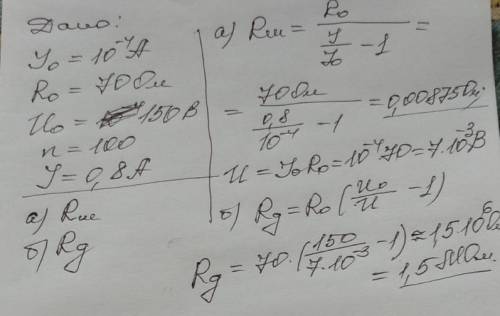 Дано:
I₀ = 10⁻⁴А
R₀ = 70 Ом
U₀ = 150 В
n = 100
I = 0,8 А
а) Rш
б) Rg
а) Rш = R₀ / (I/I₀ − 1) =
= 70 Ом / (0,8/10⁻⁴ − 1) = 0,00875 Ом
U = I₀R₀ = 10⁻⁴ 70 = 7·10⁻³ В
б) Rg = R₀ (U₀/U − 1)
Rg = 70·(150/7·10⁻³ − 1) ≈ 1,5 10⁶ Ом
= 1,5 МОм.